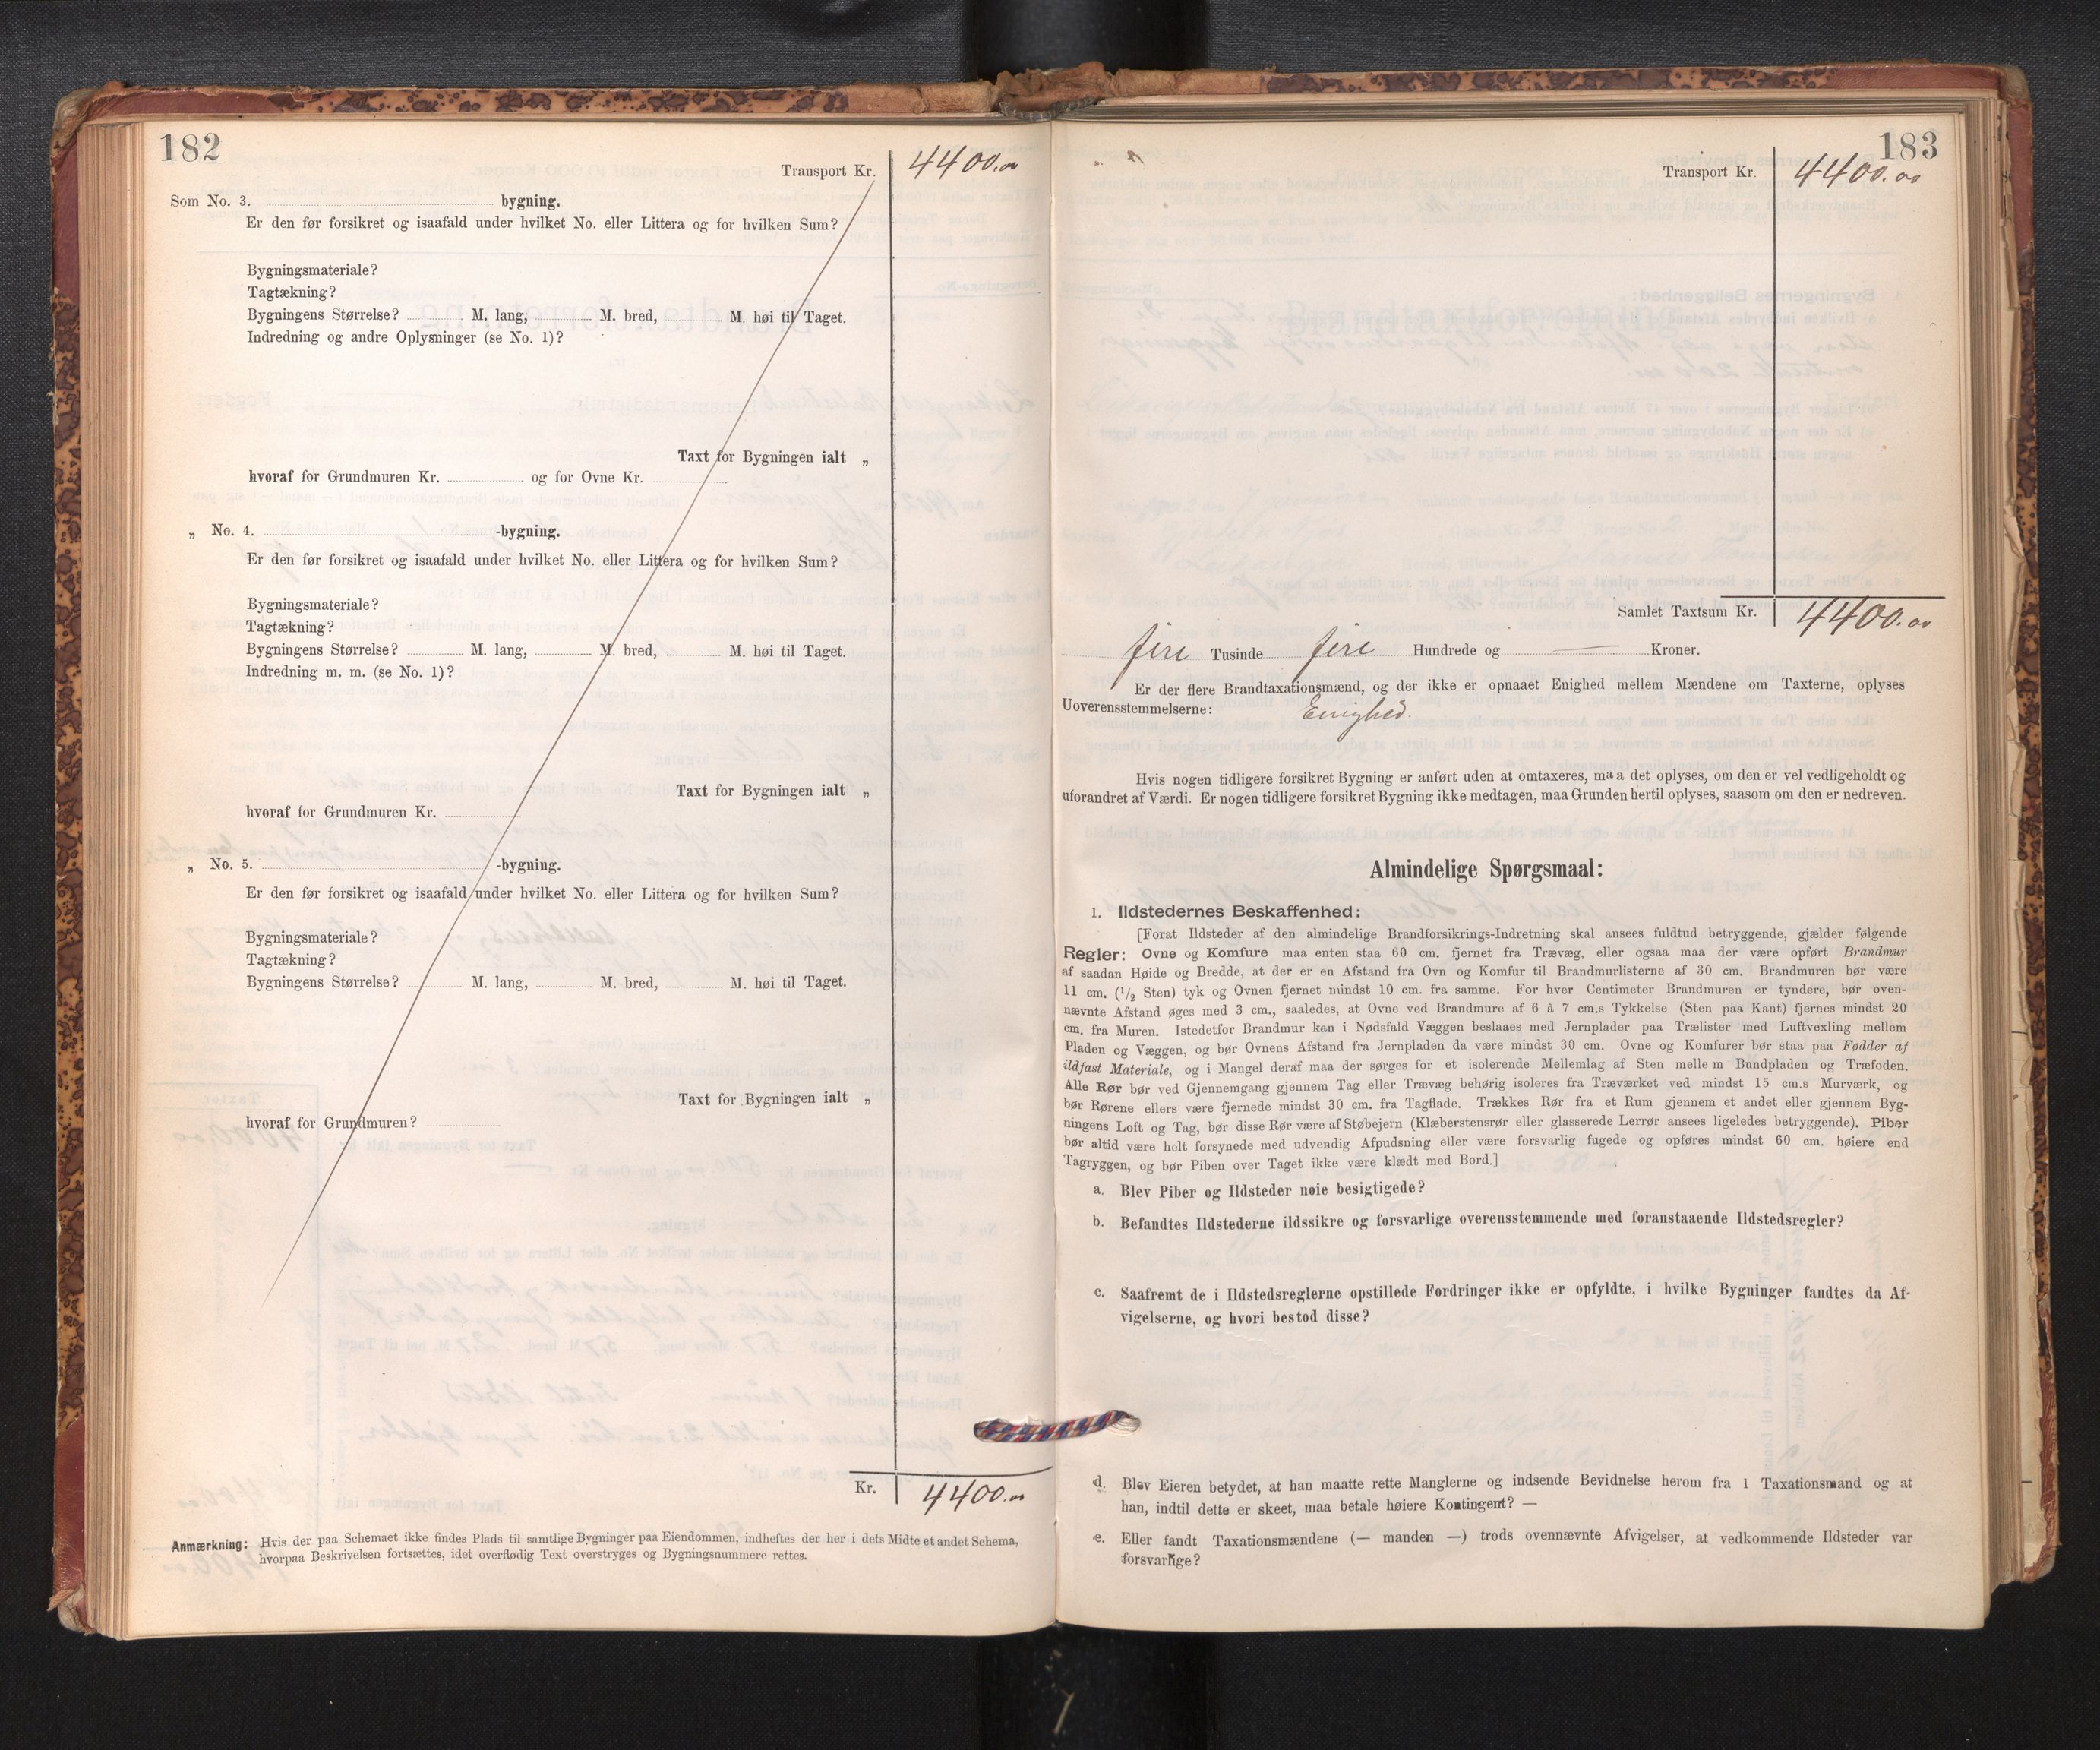 182
Transport Kr. 4400.00
Som No. 3. bygning.
Er den før forsikret og isaafald under hvilket No. eller Littera og for hvilken Sum?
Bygningsmateriale?
Tagtækning?
Bygningens Størrelse? M. lang, M. bred, M. høi til Taget.
Indredning og andre Oplysninger (se No. 1)?
Taxt for Bygningen ialt „
hvoraf for Grundmuren Kr. og for Ovne Kr.
„ No. 4. -bygning.
Er den før forsikret og isaafald under hvilket No. eller Littera og for hvilken Sum?
Bygningsmateriale?
Tagtækning?
Bygningens Størrelse? M. lang, M. bred, M. høi til Taget.
Indredning m. m. (se No. 1)?
Taxt for Bygningen ialt „
hvoraf for Grundmuren Kr.
„ No. 5. -bygning.
Er den før forsikret og isaafald under hvilket No. eller Littera og for hvilken Sum?
Bygningsmateriale?
Tagtækning?
Bygningens Størrelse? M. lang, M. bred, M. høi til Taget.
Taxt for Bygningen ialt „
hvoraf for Grundmuren?
Kr. 4400.00
Anmærkning: Hvis der paa Schemaet ikke findes Plads til samtlige Bygninger paa Eiendommen, indheftes der her i dets Midte et andet Schema,
hvorpaa Beskrivelsen fortsættes, idet overflødig Text overstryges og Bygningsnummere rettes.
183
Transport Kr. 4400.00
Samlet Taxtsum Kr. 4400.00
fire Tusinde fire Hundrede og — Kroner.
Er der flere Brandtaxationsmænd, og der ikke er opnaaet Enighed mellem Mændene om Taxterne, oplyses
Uoverensstemmelserne: Enighed.
Hvis nogen tidligere forsikret Bygning er anført uden at omtaxeres, maa det oplyses, om den er vel vedligeholdt og
uforandret af Værdi. Er nogen tidligere forsikret Bygning ikke medtagen, maa Grunden hertil oplyses, saasom om den er nedreven.
Almindelige Spørgsmaal:
1. Ildstedernes Beskaffenhed:
[Forat Ildsteder af den almindelige Brandforsikrings-Indretning skal ansees fuldtud betryggende, gjælder følgende
Regler: Ovne og Komfure maa enten staa 60 cm. fjernet fra Trævæg, eller ogsaa maa der være opført Brandmur
af saadan Høide og Bredde, at der er en Afstand fra Ovn og Komfur til Brandmurlisterne af 30 cm. Brandmuren bør være
11 cm. (1/2 Sten) tyk og Ovnen fjernet mindst 10 cm. fra samme. For hver Centimeter Brandmuren er tyndere, bør oven-
nævnte Afstand øges med 3 cm., saaledes, at Ovne ved Brandmure af 6 à 7 cm.s Tykkelse (Sten paa Kant) fjernes mindst 20
cm. fra Muren. Istedetfor Brandmur kan i Nødsfald Væggen beslaaes med Jernplader paa Trælister med Luftvexling mellem
Pladen og Væggen, og bør Ovnens Afstand fra Jernpladen da være mindst 30 cm. Ovne og Komfurer bør staa paa Fødder af
ildfast Materiale, og i Mangel deraf maa der sørges for et isolerende Mellemlag af Sten mellem Bundpladen og Træfoden.
Alle Rør bør ved Gjennemgang gjennem Tag eller Trævæg behørig isoleres fra Træværket ved mindst 15 cm.s Murværk, og
bør Rørene ellers være fjernede mindst 30 cm. fra Tagflade. Trækkes Rør fra et Rum gjennem et andet eller gjennem Byg-
ningens Loft og Tag, bør disse Rør være af Støbejern (Klæberstensrør eller glasserede Lerrør ansees ligeledes betryggende). Piber
bør altid være helt forsynede med udvendig Afpudsning eller være forsvarlig fugede og opføres mindst 60 cm. høiere end
Tagryggen, og bør Piben over Taget ikke være klædt med Bord.]
a. Blev Piber og Ildsteder nøie besigtigede?
b. Befandtes Ildstederne ildssikre og forsvarlige overensstemmende med foranstaaende Ildstedsregler?
c. Saafremt de i Ildstedsreglerne opstillede Fordringer ikke er opfyldte, i hvilke Bygninger fandtes da Af-
vigelserne, og hvori bestod disse?
d. Blev Eieren betydet, at han maatte rette Manglerne og indsende Bevidnelse herom fra 1 Taxationsmand og at
han, indtil dette er skeet, maa betale høiere Kontingent? —
e. Eller fandt Taxationsmændene (— manden —) trods ovennævnte Afvigelser, at vedkommende Ildsteder var
forsvarlige?